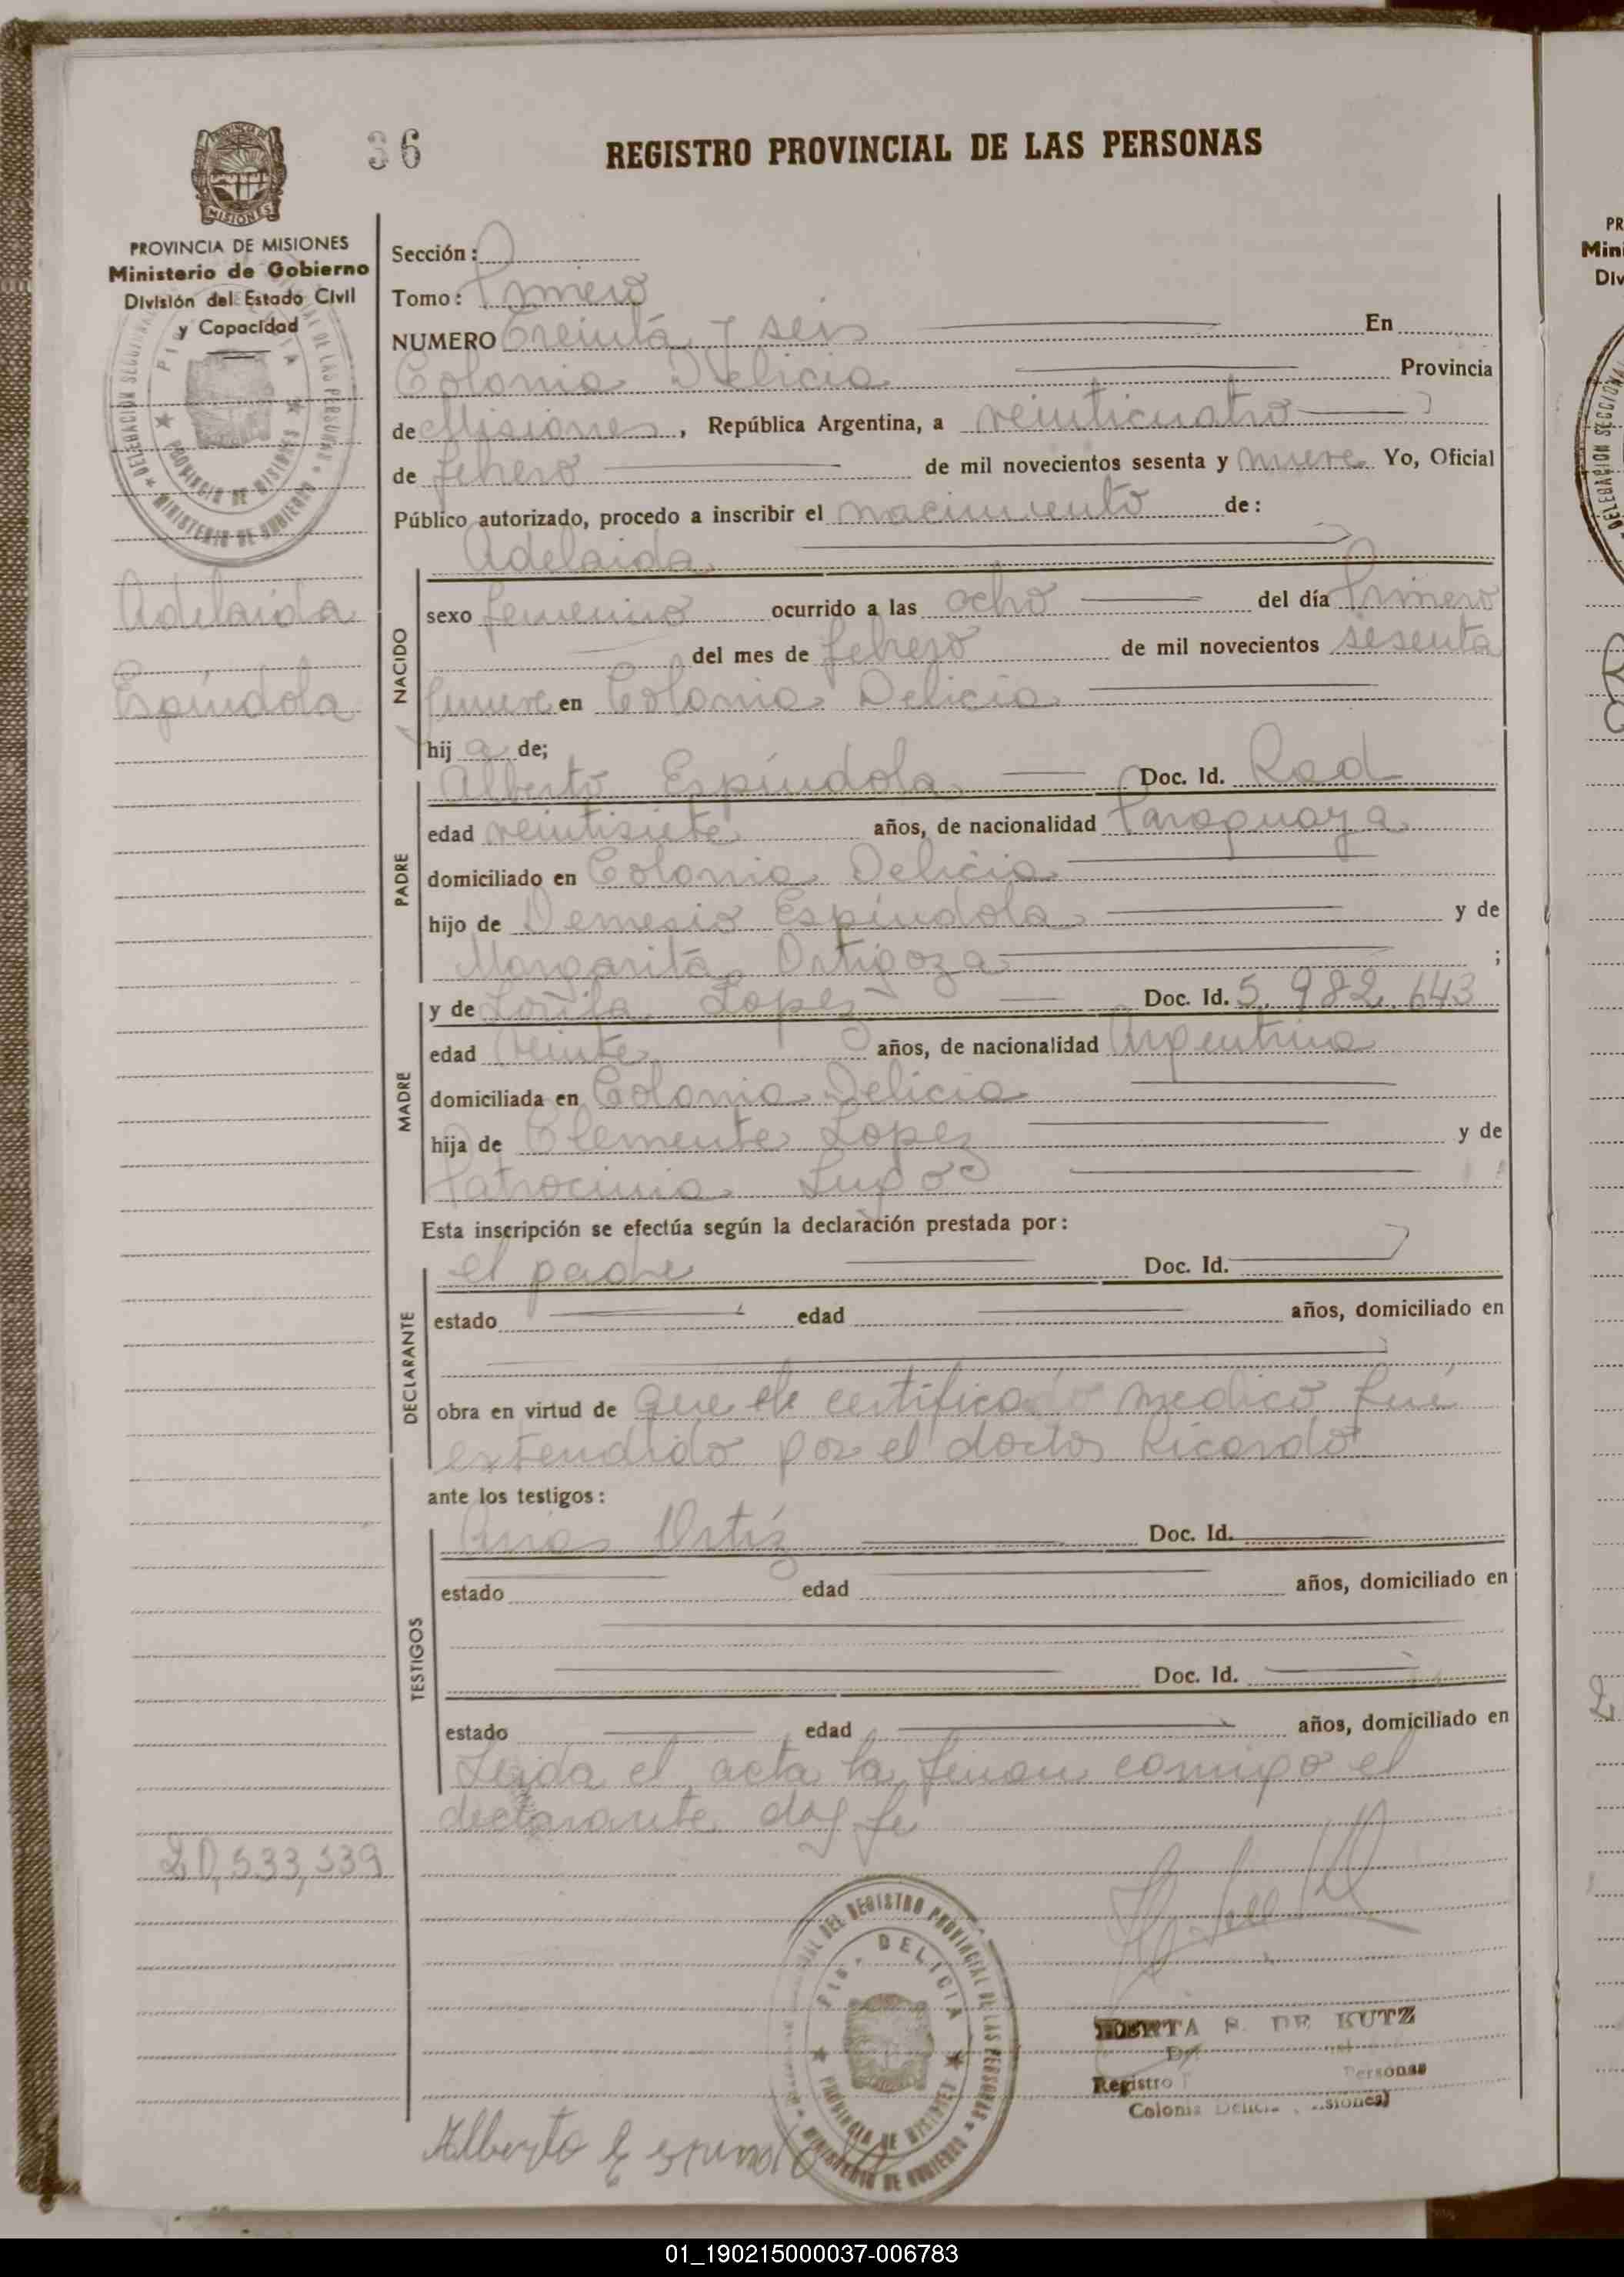 36
REGISTRO PROVINCIAL DE LAS PERSONAS
PROVINCIA DE MISIONES
Ministerio de Gobierno
División del Estado Civil
y Capacidad
Adelaida
Espíndola
20,533,539
Sección:
Tomo: Primero
NUMERO Treinta y seis En
Colonia Delicia Provincia
de Misiones, República Argentina, a veinticuatro
de febrero de mil novecientos sesenta y nueve Yo, Oficial
Público autorizado, procedo a inscribir el nacimiento de:
Adelaida
NACIDO
sexo femenino ocurrido a las ocho del día Primero
del mes de febrero de mil novecientos sesenta
nueve en Colonia Delicia
hij a de;
PADRE
Alberto Espíndola Doc. Id.
edad veintisiete años, de nacionalidad Paraguaya
domiciliado en Colonia Delicia
hijo de Demesio Espíndola y de
Margarita Ortigoza ;
MADRE
y de Lopez Doc. Id. 5.982.643
edad veinte años, de nacionalidad Argentina
domiciliada en Colonia Delicia
hija de Clemente Lopez y de
Patrocinia Lugo
Esta inscripción se efectúa según la declaración prestada por:
DECLARANTE
el padre Doc. Id.
estado edad años, domiciliado en
obra en virtud de que el certificado medico fué
extendido por el doctor Ricardo
ante los testigos:
TESTIGOS
Arias Ortíz Doc. Id.
estado edad años, domiciliado en
Doc. Id.
estado edad años, domiciliado en
Leida el acta la firman conmigo el
declarante doy fe
DEL REGISTRO PROVINCIAL DE LAS PERSONAS
DELICIA
PROVINCIA DE MISIONES
MINISTERIO DE GOBIERNO
DE KUTZ
Registro Personas
Colonia Delicia
Alberto Espindola
01_190215000037-006783